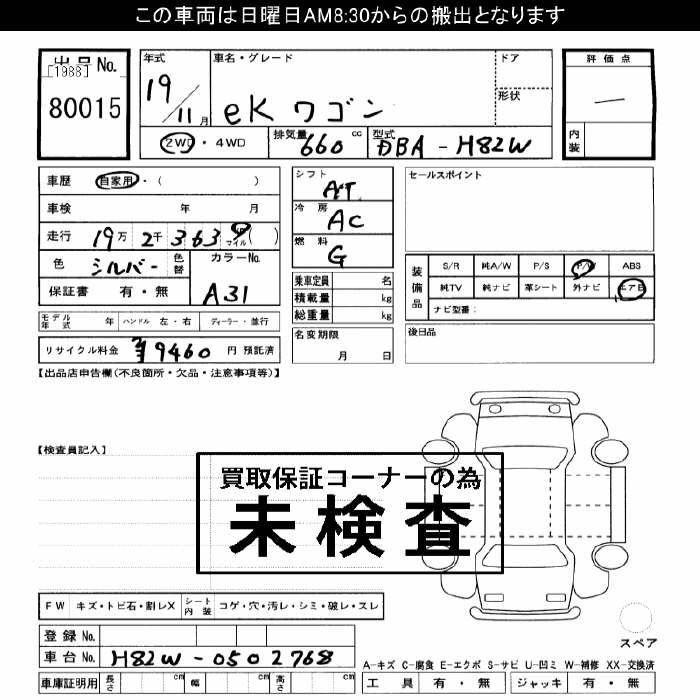 この車両は日曜日AM8:30からの搬出となります
出品No.
[1988]
80015
年式 19/11月
車名・グレード eKワゴン
ドア
形状
評価点 —
内装
2WD・4WD 排気量 660 cc 型式 DBA-H82W
車歴 自家用・( )
車検 年 月
走行 19万2千3639 マイル( )
色 シルバー 色替 カラーNo. A31
保証書 有・無
モデル年式 年 ハンドル 左・右 ディーラー・並行
リサイクル料金 ¥9460 円 預託済
シフト AT
冷房 AC
燃料 G
乗車定員 名
積載量 kg
総重量 kg
名変期限
月 日
セールスポイント
装備品 S/R 純A/W P/S P/W ABS
純TV 純ナビ 革シート 外ナビ エアB
ナビ型番:
後日品
【出品店申告欄(不良箇所・欠品・注意事項等)】
【検査員記入】
買取保証コーナーの為
未検査
FW キズ・トビ石・割レX シート内装 コゲ・穴・汚レ・シミ・破レ・スレ
登録No.
車台No. H82W-0502768
車庫証明用 長さ cm 幅 cm 高さ cm
スペア
A-キズ C-腐食 E-エクボ S-サビ U-凹ミ W-補修 XX-交換済
工具 有・無 ジャッキ 有・無